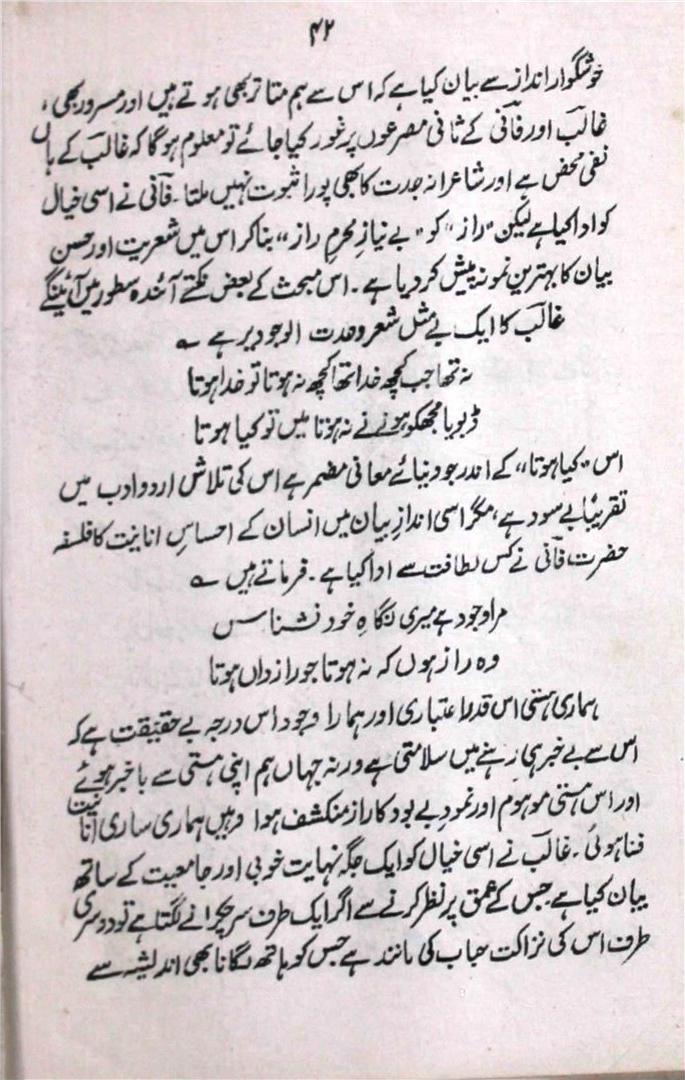 ۴۲
خوشگوار انداز سے بیان کیا ہے کہ اس سے ہم متاثر بھی ہوتے ہیں اور مسرور بھی،
غالبؔ اور فانیؔ کے ثانی مصرعوں پر غور کیا جائے تو معلوم ہوگا کہ غالبؔ کے ہاں
نفی محض ہے اور شاعرانہ جدت کا بھی پورا ثبوت نہیں ملتا۔ فانیؔ نے اسی خیال
کو ادا کیا ہے لیکن "راز" کو "بے نیازِ محرمِ راز" بنا کر اس میں شعریت اور حسن
بیان کا بہترین نمونہ پیش کر دیا ہے۔ اس مبحث کے بعض نکتے آئندہ سطور میں آئینگے
غالبؔ کا ایک بے مثل شعر وحدت الوجود پر ہے ؎
نہ تھا جب کچھ خدا تھا کچھ نہ ہوتا تو خدا ہوتا
ڈبویا مجھکو ہونے نے نہ ہوتا میں تو کیا ہوتا
اس "کیا ہوتا" کے اندر جو دنیائے معانی مضمر ہے اس کی تلاش اردو ادب میں
تقریباً بے سود ہے، مگر اسی اندازِ بیان میں انسان کے احساسِ انانیت کا فلسفہ
حضرت فانیؔ نے کس لطافت سے ادا کیا ہے۔ فرماتے ہیں ؎
مرا وجود ہے میری نگاہِ خود نشناس
وہ راز ہوں کہ نہ ہوتا جو رازداں ہوتا
ہماری ہستی اس قدر اعتباری اور ہمارا وجود اس درجہ بے حقیقت ہے کہ
اس سے بے خبر ہی رہنے میں سلامتی ہے ورنہ جہاں ہم اپنی ہستی سے باخبر ہوئے
اور اس ہستی موہوم اور نمودِ بے بود کا راز منکشف ہوا وہیں ہماری ساری انانیت
فنا ہوئی۔ غالبؔ نے اسی خیال کو ایک جگہ نہایت خوبی اور جامعیت کے ساتھ
بیان کیا ہے۔ جس کے عمق پر نظر کرنے سے اگر ایک طرف سر چکرانے لگتا ہے تو دوسری
طرف اس کی نزاکت حباب کی مانند ہے جس کو ہاتھ لگانا بھی اندیشہ سے